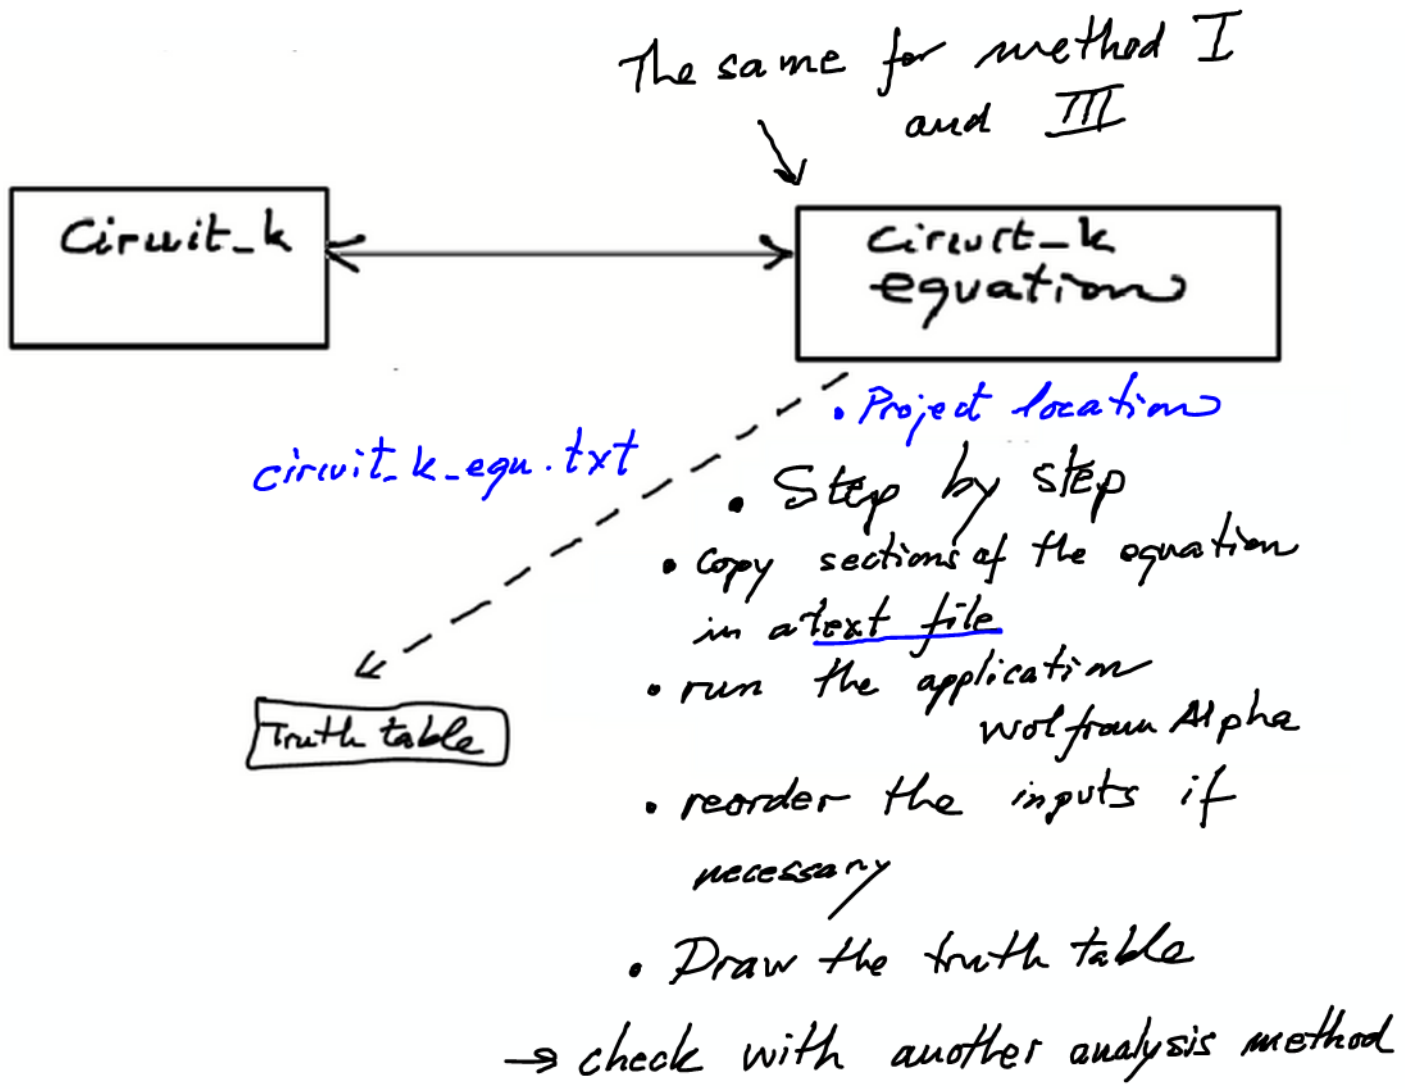 The same for method I
and III
Circuit_k
circuit_k
equation
• Project location
circuit_k_equ.txt
• Step by step
• copy sections of the equation
in a text file
• run the application
wolfram Alpha
• reorder the inputs if
necessary
Truth table
• Draw the truth table
→ check with another analysis method